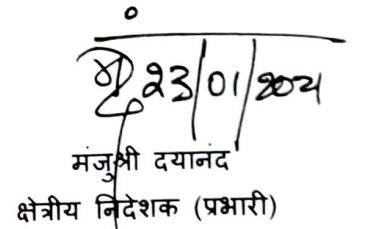 23/01/2021
मंजुश्री दयानंद
क्षेत्रीय निदेशक (प्रभारी)